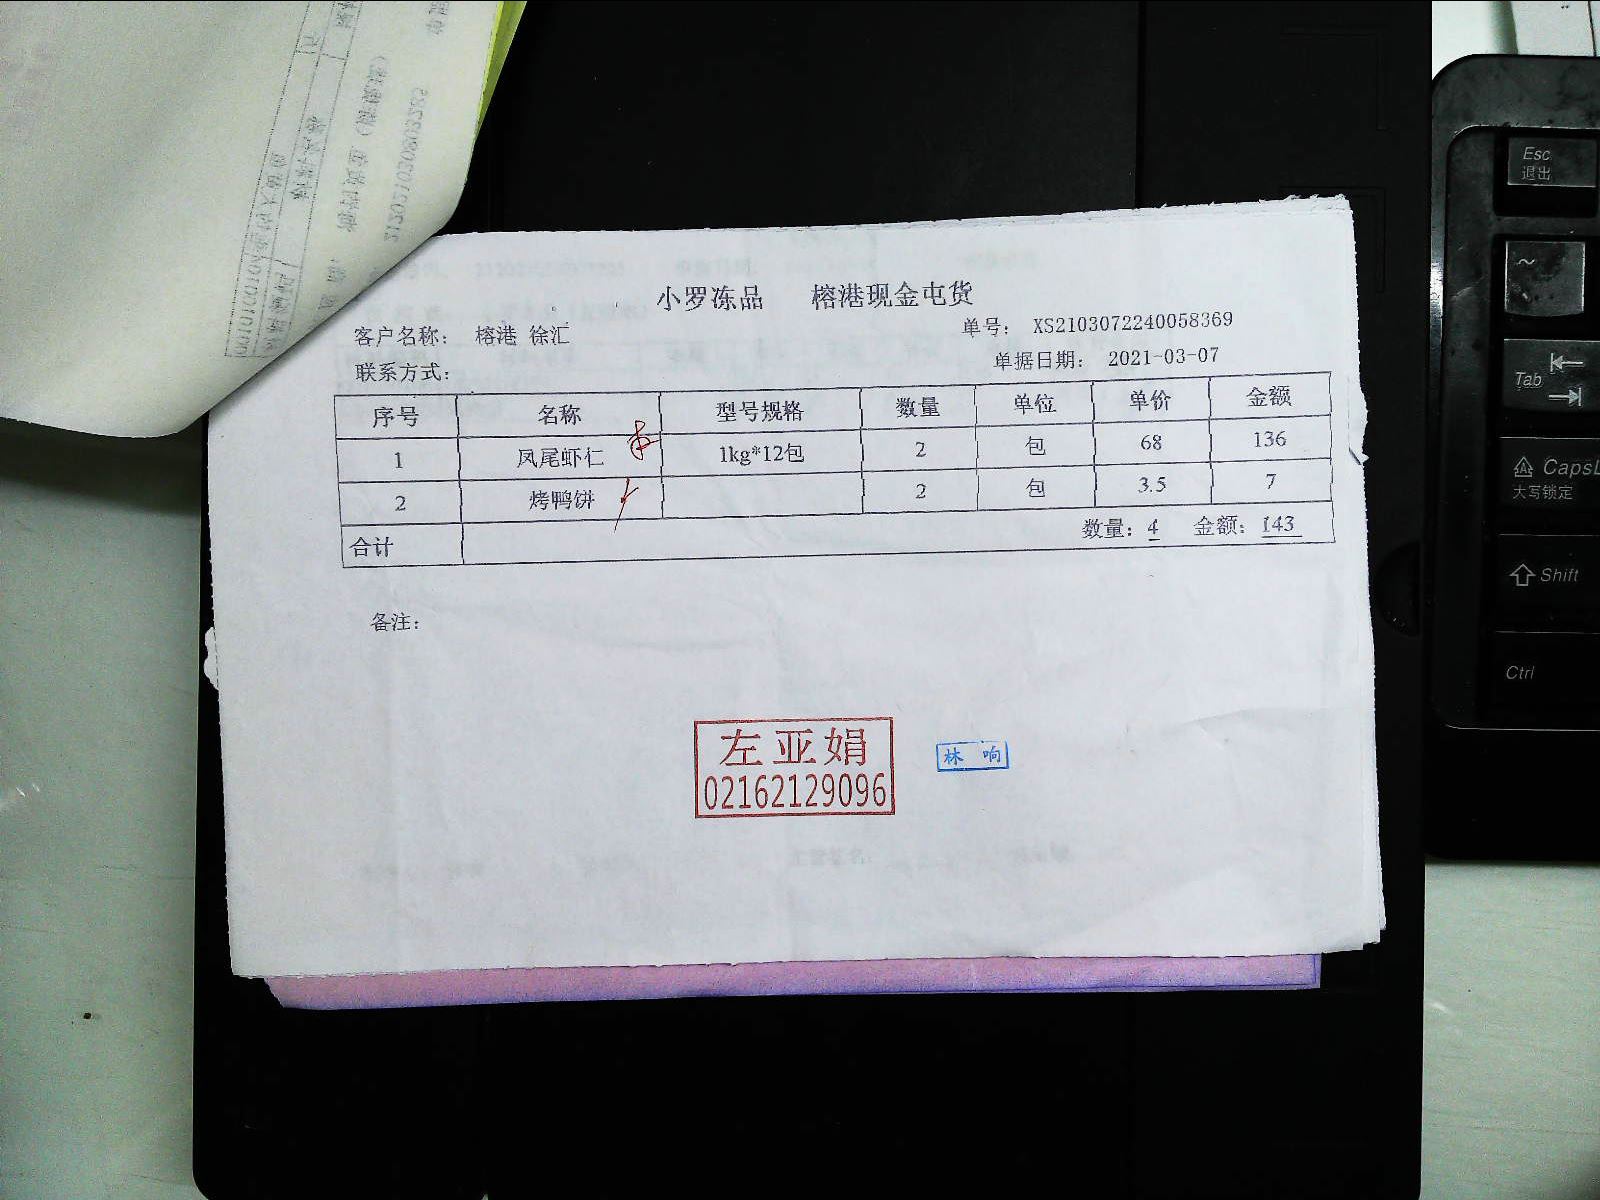 小罗冻品 榕港现金屯货
客户名称： 榕港 徐汇 单号： XS2103072240058369
联系方式： 单据日期： 2021-03-07
序号 名称 型号规格 数量 单位 单价 金额
1 凤尾虾仁 1kg*12包 2 包 68 136
2 烤鸭饼 2 包 3.5 7
合计 数量：4 金额：143
备注：
左亚娟
02162129096
林 响
Esc
退出
~
Tab
CapsL
大写锁定
Shift
Ctrl